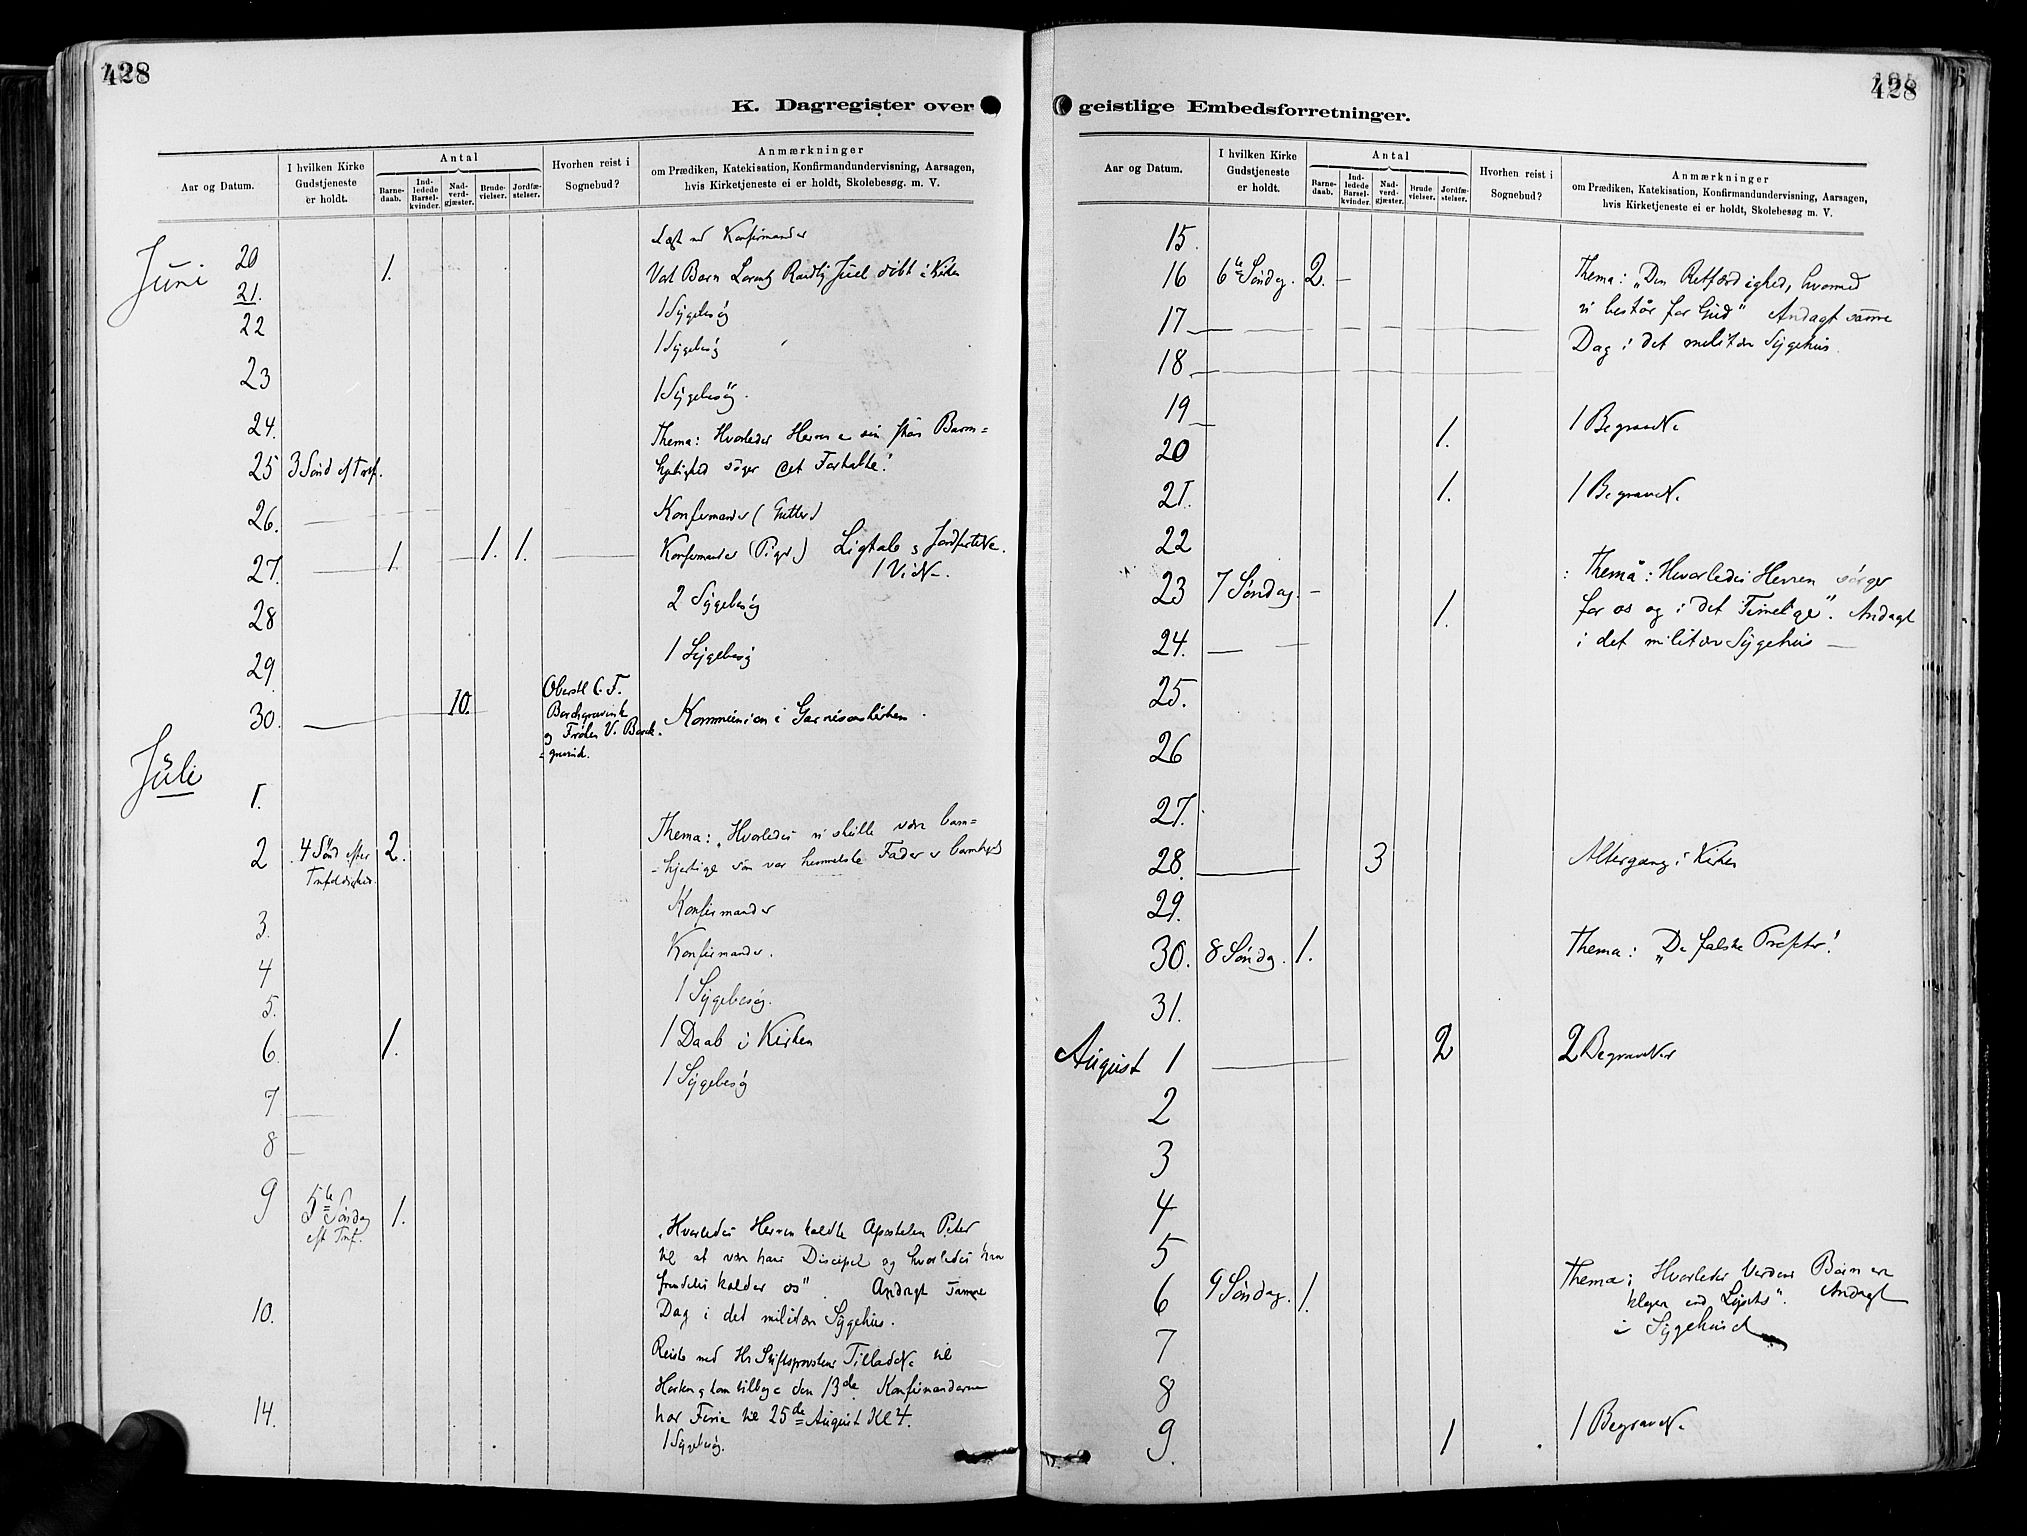 428
K. Dagregister over
Aar og Datum.
I hvilken Kirke
Gudstjeneste
er holdt.
Antal
Barne-
daab.
Ind-
ledede
Barsel-
kvinder.
Nad-
verd-
gjæster.
Brude-
vielser.
Jordfæ-
stelser.
Hvorhen reist i
Sognebud?
Anmærkninger
om Prædiken, Katekisation, Konfirmandundervisning, Aarsagen,
hvis Kirketjeneste ei er holdt, Skolebesøg m. V.
Konfirmander
Juni 20 1. Barn Juel døbt i Kirken
21. 1 Sygebesøg
22 1 Sygebesøg
23 1 Sygebesøg.
24. Thema: Hvorledes Herren Barm=
25 3 Sønd eft Tref. hjertighed søger det Fortabte!
26. Konfirmander (Gutter)
27. 1. 1. 1. Konfirmander (Piger) Ligtale
1 Vi
28 2 Sygebesøg
29 1 Sygebesøg
30. 10. Oberstl C. F.
Borchgrevink
og Frøken V. Borch
=grevink.
Kommunion i Garnisonskirken.
Juli
1.
2 4 Sønd efter 2. Thema: „Hvorledes vi skulle være barm=
Trefoldighed. =hjertige som vor himmelske Fader er barmhj
3. Konfirmander
4 Konfirmander.
5. 1 Sygebesøg.
6. 1. 1 Daab i Kirken
7 1 Sygebesøg
8
9 5te Søndag 1.
eft Tref.
„Hvorledes Herren kaldte Apostelen Peter
til at være hans Discipel og hvorledes han
fremdeles kalder os". Andagt samme
10. Dag i det militære Sygehus.
Reiste med Hr Stiftsprovstens til
den 13de Konfirmanderne
14. har Ferie til 25de August Kl 4.
1 Sygebesøg.
428
geistlige Embedsforretninger.
Aar og Datum.
I hvilken Kirke
Gudstjeneste
er holdt.
Antal
Barne-
daab.
Ind-
ledede
Barsel-
kvinder.
Nad-
verd-
gjæster.
Brude
vielser.
Jordfæ-
stelser.
Hvorhen reist i
Sognebud?
Anmærkninger
om Prædiken, Katekisation, Konfirmandundervisning, Aarsagen,
hvis Kirketjeneste ei er holdt, Skolebesøg m. V.
15.
16 6te Søndag. 2. Thema: „Den Retfærdighed, hvormed
17 vi består for Gud" Andagt samme
18 Dag i det militære Sygehus.
19
20 1. 1
21. 1. 1
22
23 7 Søndag. Thema: Hvorledes Herren sørger
1. for os og i det Timelige". Andagt
24. i det militære Sygehus
25.
26
27.
28. 3 Altergang i Kirken
29.
30. 8 Søndag. 1. Thema: „De falske Profeter!
31.
August 1 2 2
2
3
4
5
6 9 Søndag. 1. Thema: Hvorledes Verdens Børn ere
klogere end Lysets". Andagt
i Sygehuset
7
8
9. 1 1